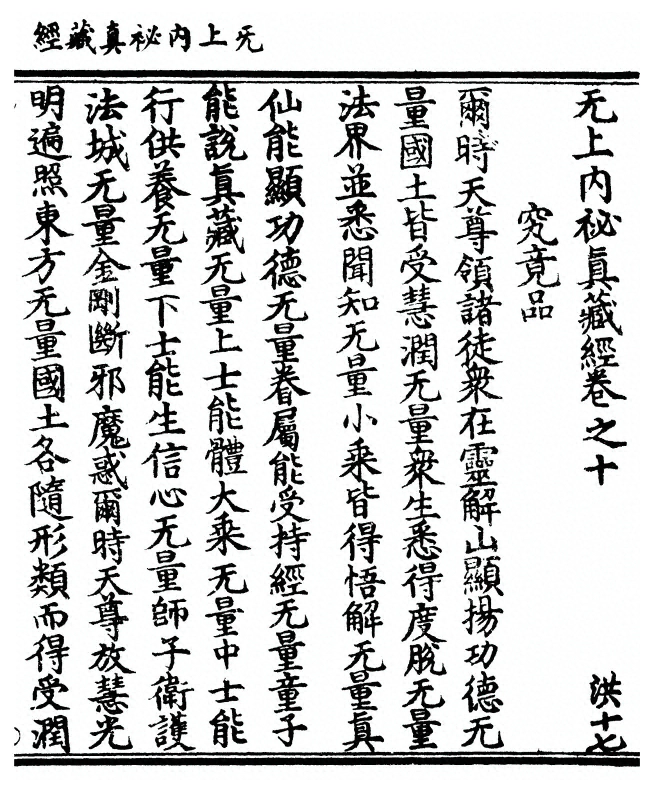 无上內祕真藏經
无上內祕眞藏經卷之十 洪十七
究竟品
爾時天尊領諸徒衆在靈解山顯揚功德无
量國土皆受慧潤无量衆生悉得度脫无量
法界並悉聞知无量小乘皆得悟解无量眞
仙能顯功德无量眷屬能受持經无量童子
能說眞藏无量上士能體大乘无量中士能
行供養无量下士能生信心无量師子衛護
法城无量金剛斷邪魔惑爾時天尊放慧光
明遍照東方无量國土各隨形類而得受潤